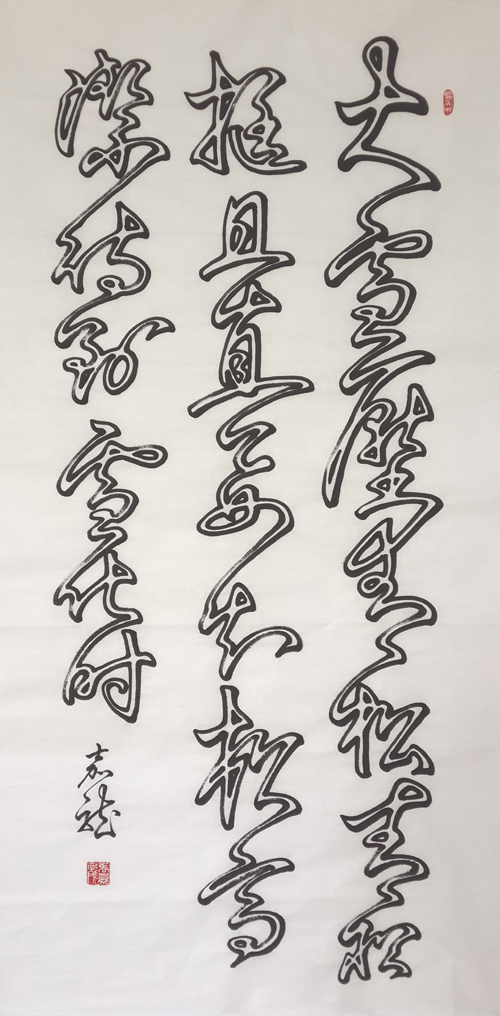 大雪压青松青松
挺且直要知松高
潔待到雪化时
嘉龙